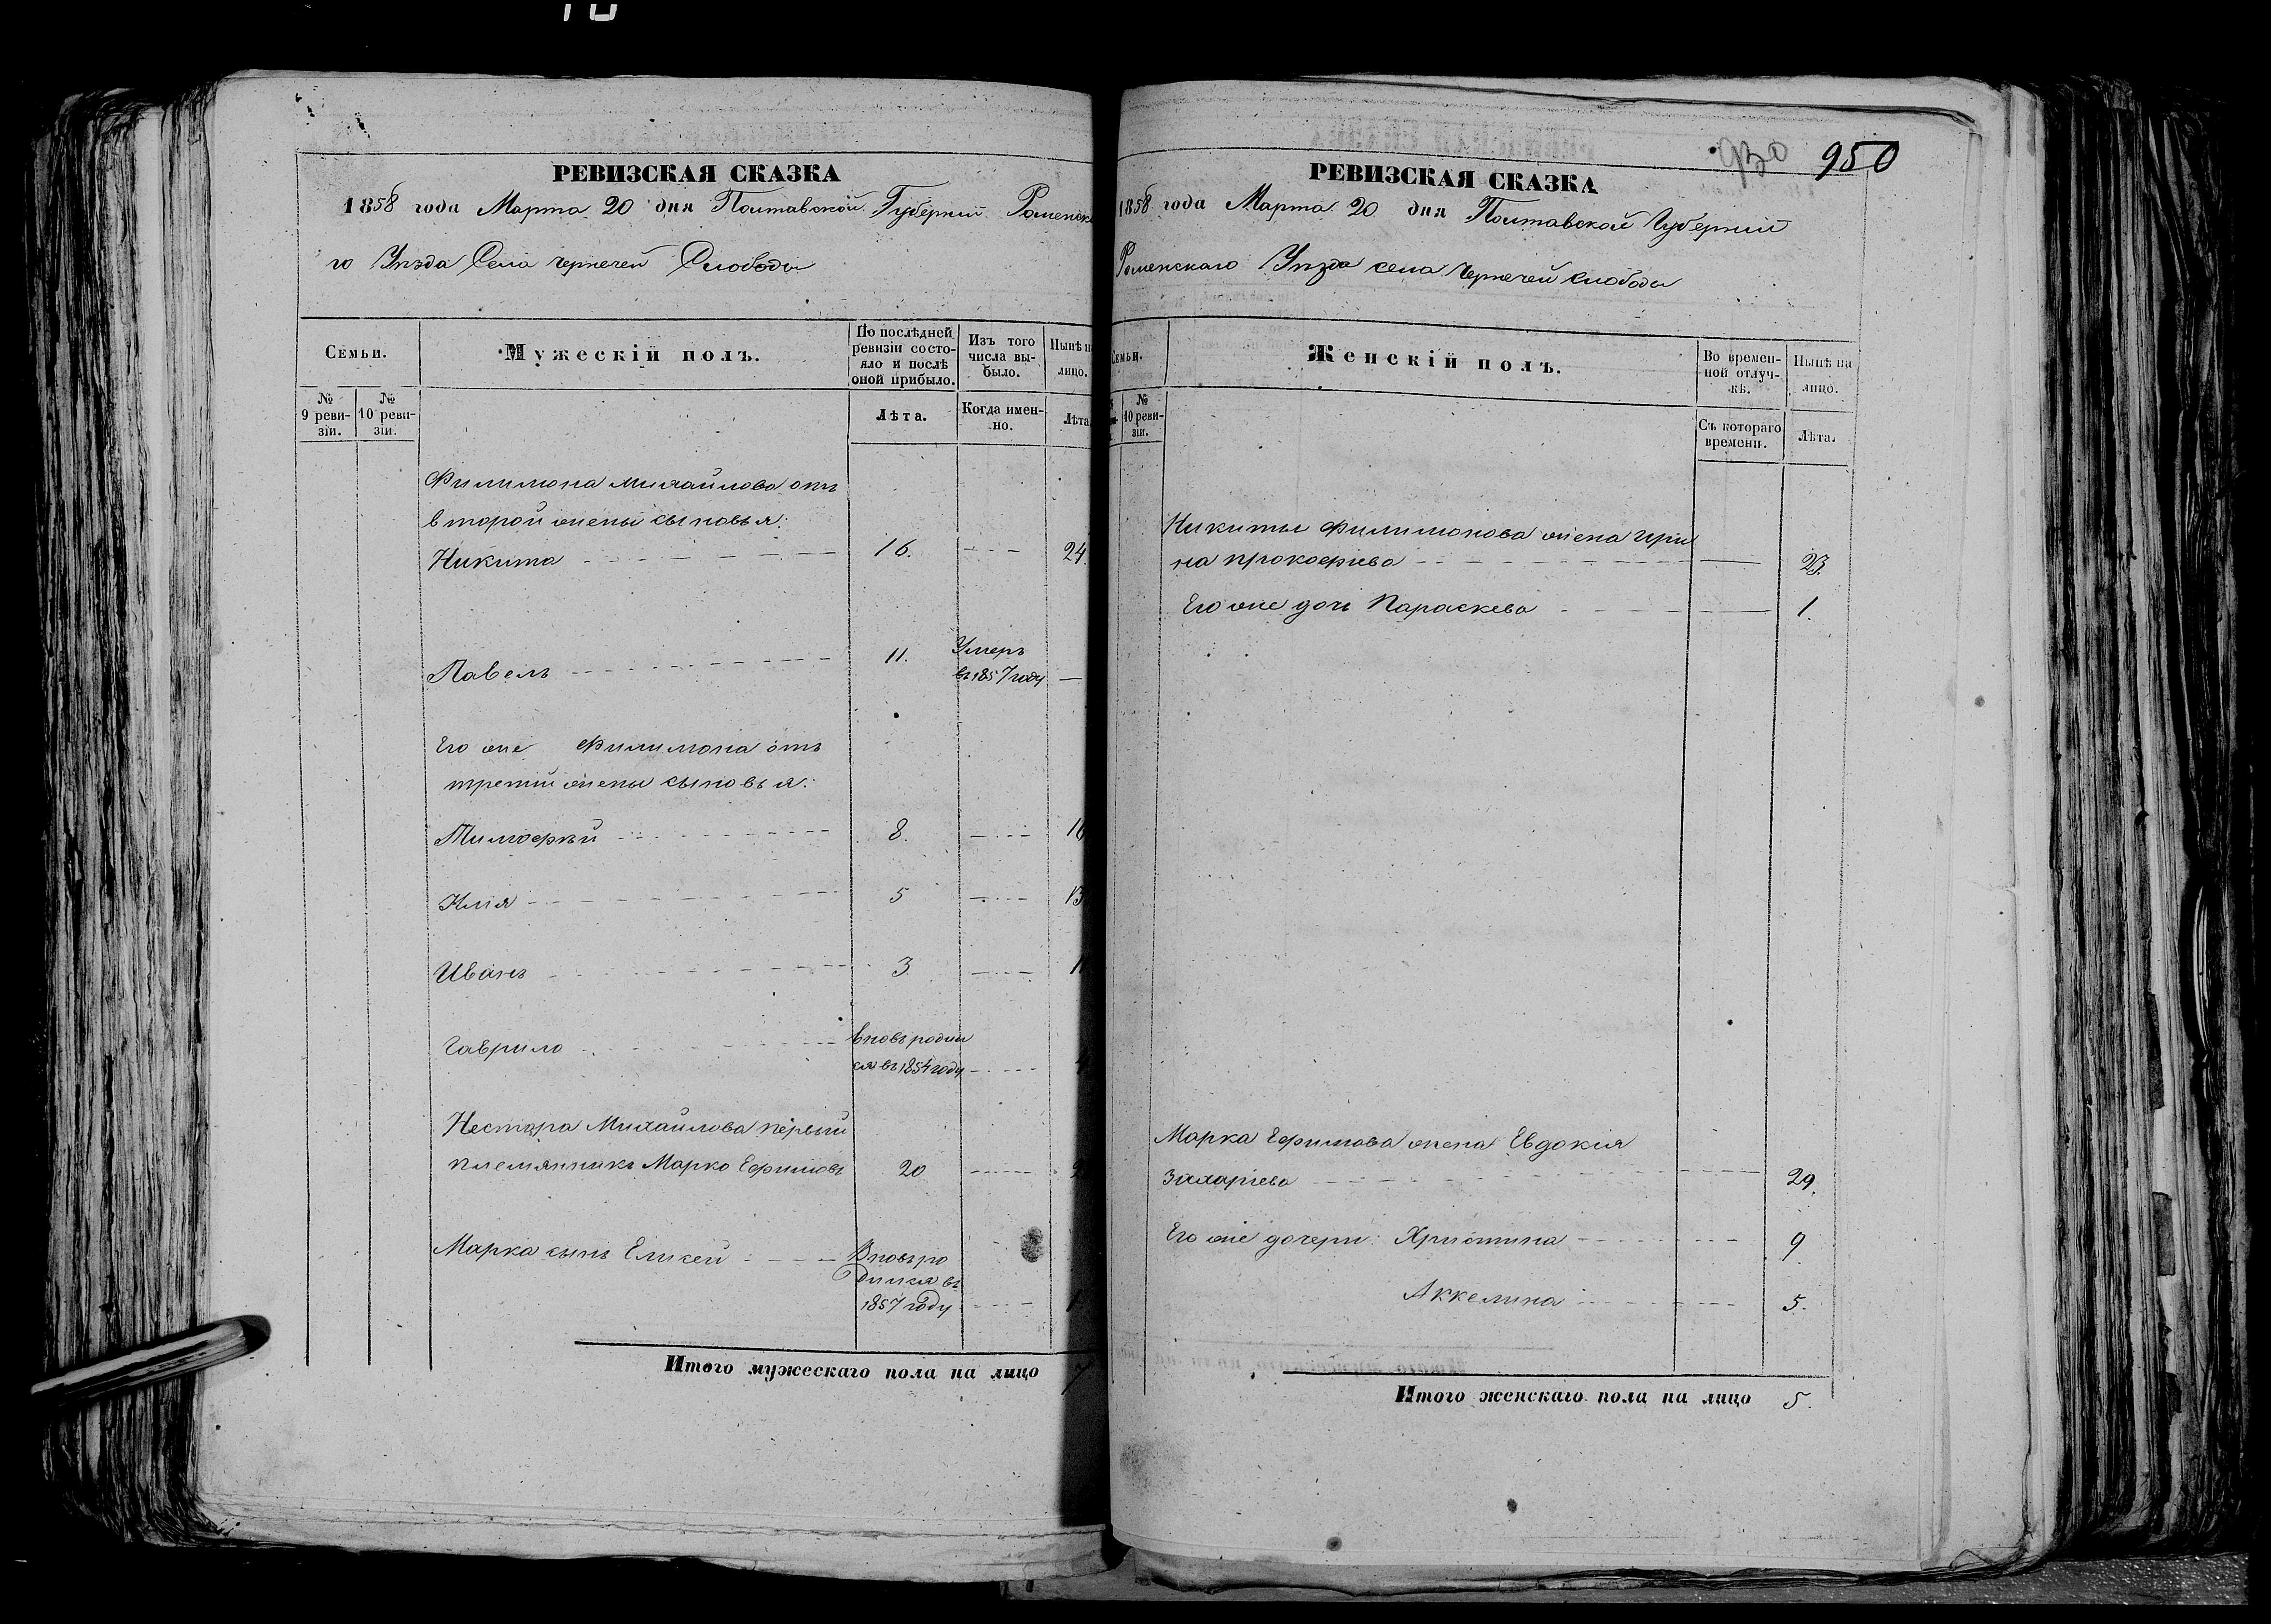 РЕВИЗСКАЯ СКАЗКА
1858 года Марта 20 дня Полтавской Губернии Роменска
го Уѣзда Села Чернечей Слободы
Семьи.
Мужескій полъ.
По послѣдней ревизіи состояло и послѣ оной прибыло.
Изъ того числа выбыло.
Нынѣ н
лицо.
№ 9 ревизіи.
№ 10 ревизіи.
Лѣта.
Когда именно.
Лѣта
Филимона Михайлова отъ
второй жены сыновья:
Никита 16. 24.
Павелъ 11. Умеръ
въ 1857 году
Его же Филимона отъ
третій жены сыновья:
Тимофѣй 8. 16
Илія 5 13
Иванъ 3 11
Гаврило вновь родил
ся въ 1854 году 4
Нестора Михайлова первый
племянникъ Марко Ефимовъ 20
Марка сынъ Елисей Вновь ро
дился въ
1857 году 1
Итого мужескаго пола на лицо 7
930 950
РЕВИЗСКАЯ СКАЗКА
1858 года Марта 20 дня Полтавской Губерніи
Роменскаго Уѣзда села Чернечей Слободы
Семьи.
Женскій полъ.
Во временной отлучкѣ.
Нынѣ на лицо.
№ 10 ревизіи.
Съ котораго времени.
Лѣта.
Никиты Филимонова жена Ири
на Прокофіева 23.
Его же дочь Параскева 1.
Марка Ефимова жена Евдокія
Захаріева 29.
Его же дочери: Христина 9
Аккелина 5.
Итого женскаго пола на лицо 5.